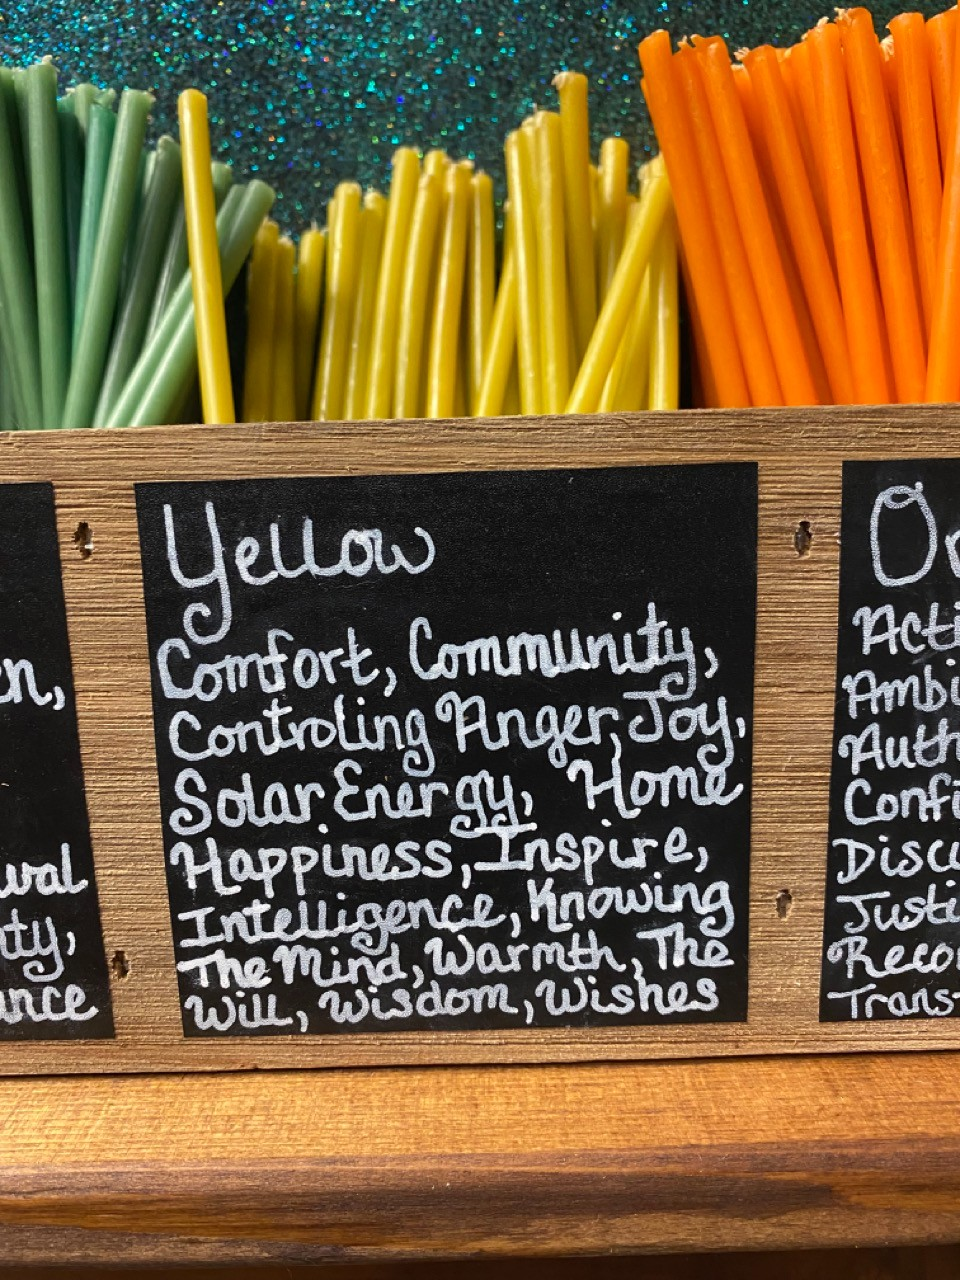 Yellow
Comfort, Community,
Controling Anger, Joy,
Solar Energy, Home
Happiness, Inspire,
Intelligence, Knowing
The Mind, Warmth, The
Will, Wisdom, Wishes
en,
val
ty,
ance
Or
Acti
Ambi
Auth
Confi
Disc
Justi
Recon
Trans